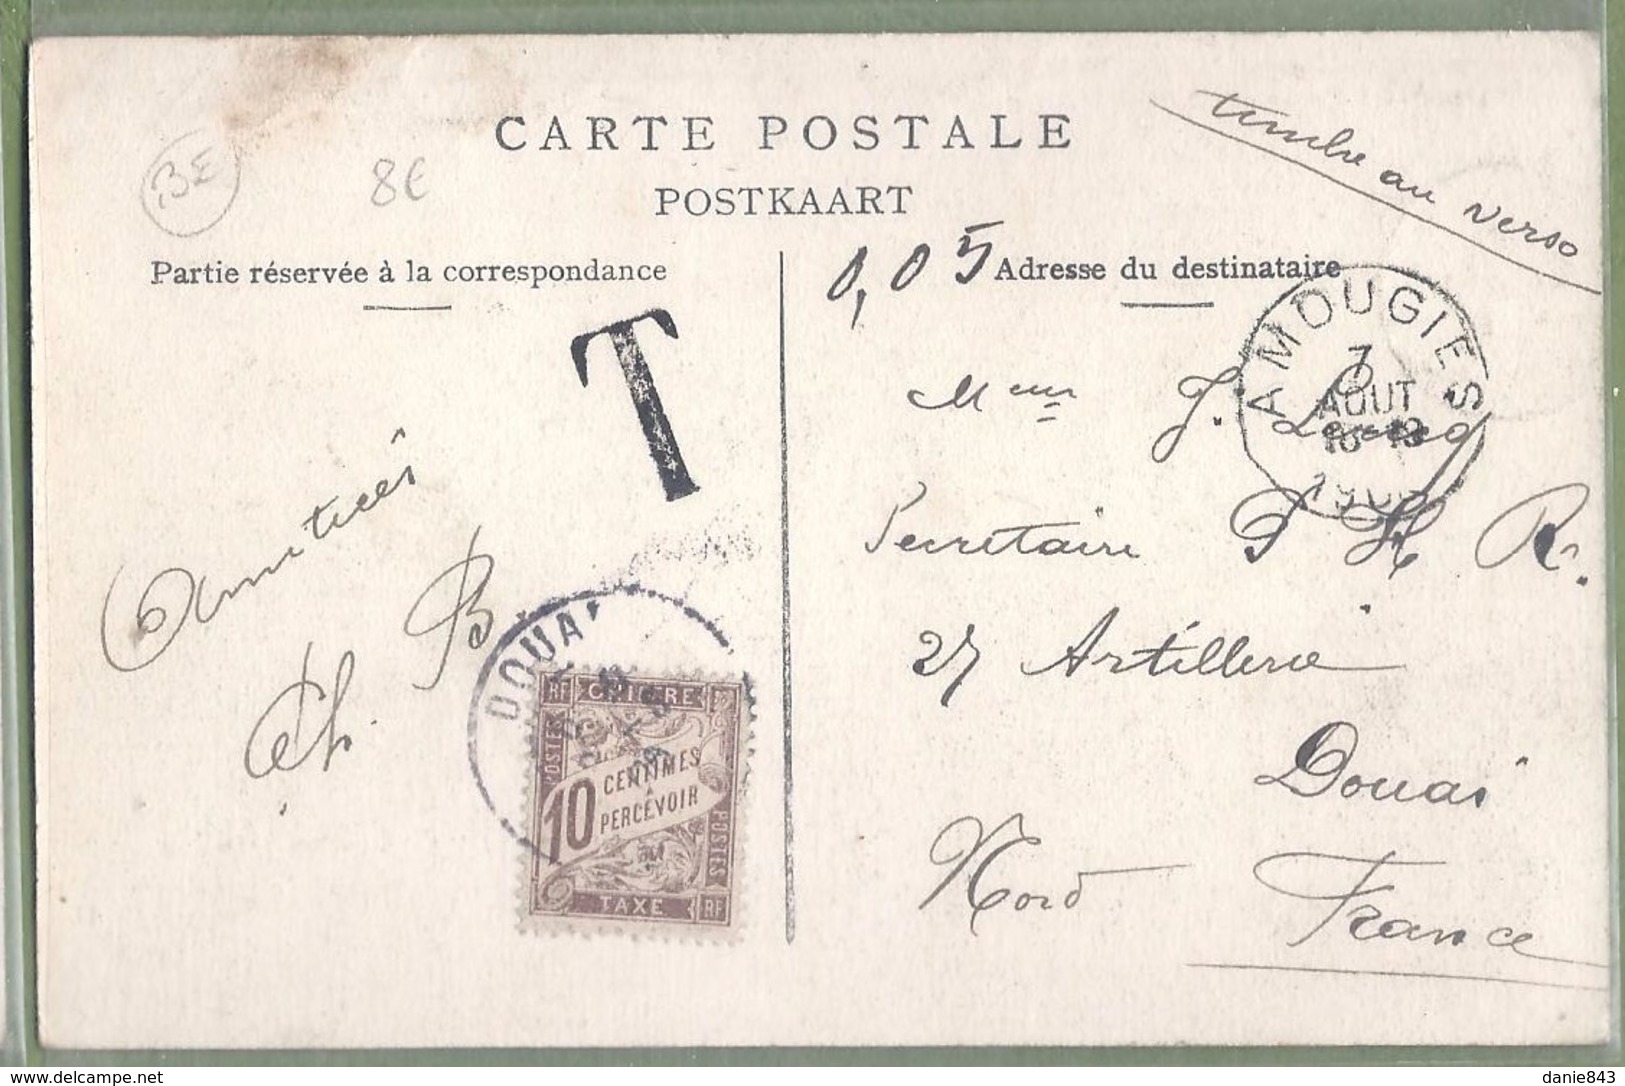 CARTE POSTALE
POSTKAART
timbre au verso
BE
8€
Partie réservée à la correspondance
0,05
Adresse du destinataire
T
AMOUGIES
7
AOUT
1908
Amitiés
Ch. B
J.
Secretaire
27 Artillerie
Douai
Nord
France
DOUAI
RF CHIFFRE
POSTES
10 CENTIMES
A
PERCEVOIR
POSTES
TAXE RF
www.delcampe.net
danie843